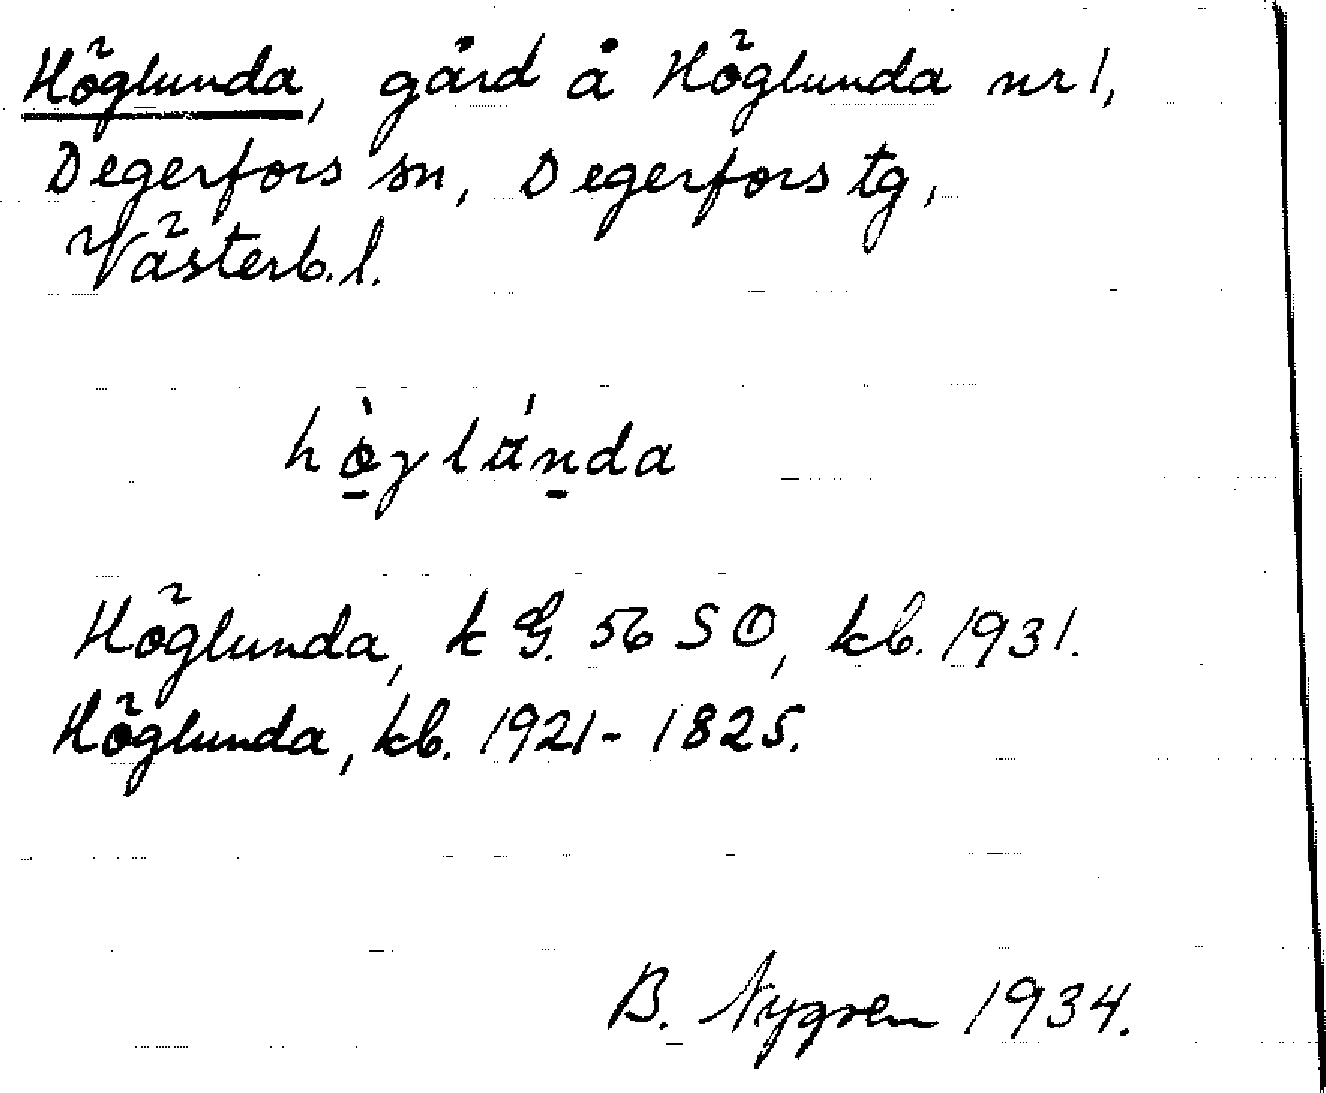 Höglunda, gård å Höglunda nr 1,
Degerfors sn, Degerfors tg,
Västerb. l.
Höglunda, k G. 56 SO, kb. 1931.
Höglunda, kb. 1921-1825.
B. Nygren 1934.